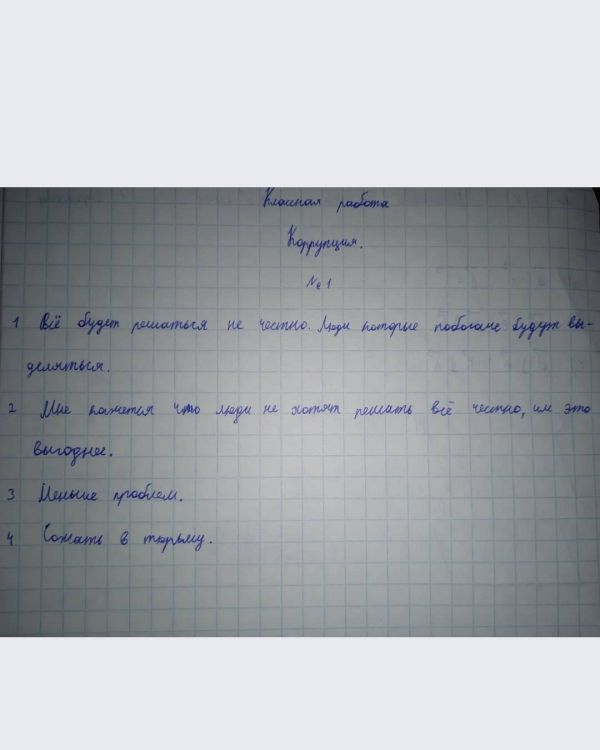 Классная работа
Коррупция.
№ 1
1 Всё будет решаться не честно. Люди которые побогаче будут вы-
деляться.
2 Мне кажется что люди не хотят решать всё честно, им это
выгоднее.
3 Меньше проблем.
4 Сажать в тюрьму.